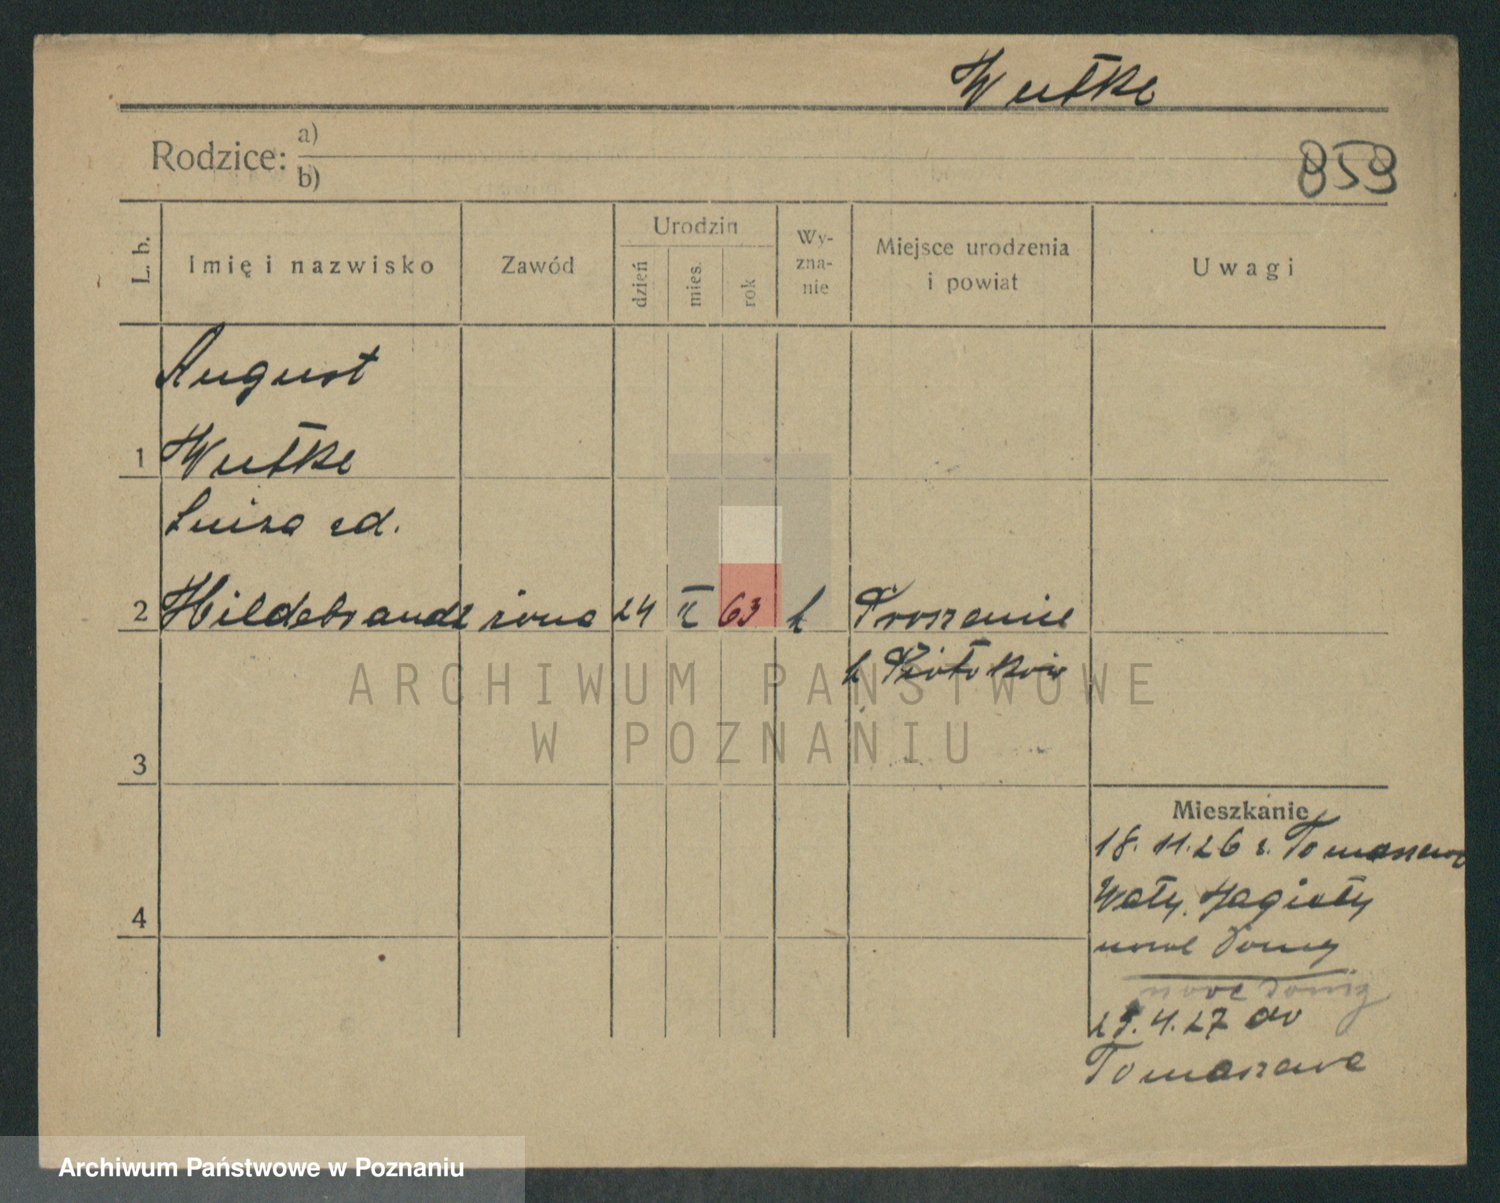 Wutke
Rodzice: a)
b)
859
L. b.
Imię i nazwisko
Zawód
Urodzin
dzień
mies.
rok
Wy-
zna-
nie
Miejsce urodzenia
i powiat
Uwagi
August
1 Wutke
Luiza zd.
2 Hildebrandt żona 24 II 63 l Proszenie
p Piotrków
3
4
Mieszkanie
18.11.26 z Tomaszowa
Wały Jagiełły
nowe Domy
nowe Domy
29.4.27 do
Tomaszowa
ARCHIWUM PAŃSTWOWE
W POZNANIU
Archiwum Państwowe w Poznaniu